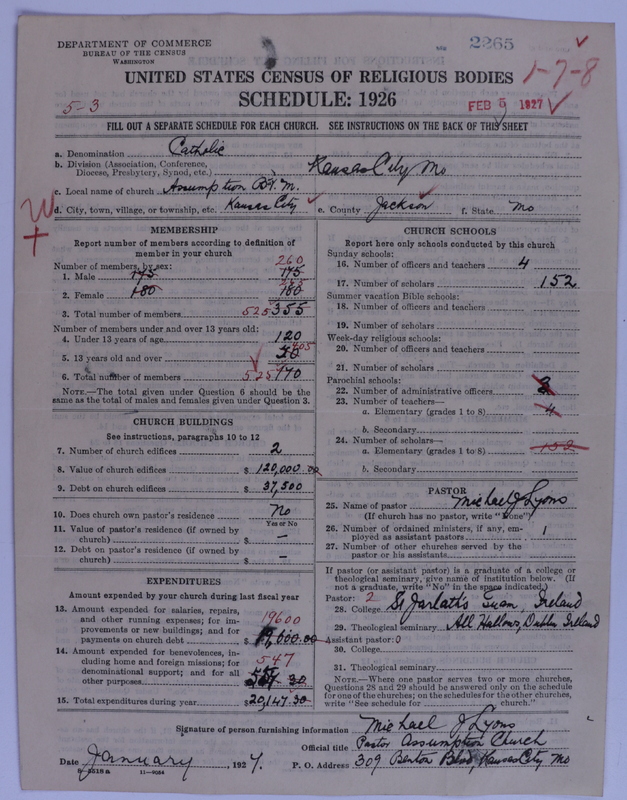 DEPARTMENT OF COMMERCE
BUREAU OF THE CENSUS
WASHINGTON
2265
UNITED STATES CENSUS OF RELIGIOUS BODIES
1-7-8
SCHEDULE: 1926
5-3
FEB 5 1927
FILL OUT A SEPARATE SCHEDULE FOR EACH CHURCH. SEE INSTRUCTIONS ON THE BACK OF THIS SHEET
a. Denomination Catholic
b. Division (Association, Conference, Diocese, Presbytery, Synod, etc.) Kansas City Mo
c. Local name of church Assumption B.V.M.
d. City, town, village, or township, etc. Kansas City e. County Jackson f. State Mo
MEMBERSHIP
Report number of members according to definition of
member in your church
Number of members, by sex: 260
1. Male 175 175
2. Female 180 180
3. Total number of members 525 355
Number of members under and over 13 years old:
4. Under 13 years of age 120
5. 13 years old and over 405
6. Total number of members 525 170
NOTE.—The total given under Question 6 should be
same as the total of males and females given under Question 3.
CHURCH BUILDINGS
See instructions, paragraphs 10 to 12
7. Number of church edifices 2
8. Value of church edifices $ 120,000.00
9. Debt on church edifices $ 37,500
10. Does church own pastor's residence No
Yes or No
11. Value of pastor's residence (if owned by
church) $ —
12. Debt on pastor's residence (if owned by
church) $ —
EXPENDITURES
Amount expended by your church during last fiscal year
13. Amount expended for salaries, repairs,
and other running expenses; for im- 19600
provements or new buildings; and for
payments on church debt $ 19,600.00
14. Amount expended for benevolences, in-
cluding home and foreign missions; for 547
denominational support; and for all
other purposes $ 547.30
15. Total expenditures during year $ 20,147.30
CHURCH SCHOOLS
Report here only schools conducted by this church
Sunday schools:
16. Number of officers and teachers 4
17. Number of scholars 152
Summer vacation Bible schools:
18. Number of officers and teachers
19. Number of scholars
Week-day religious schools:
20. Number of officers and teachers
21. Number of scholars
Parochial schools:
22. Number of administrative officers
23. Number of teachers—
a. Elementary (grades 1 to 8) 4
b. Secondary
24. Number of scholars—
a. Elementary (grades 1 to 8) 152
b. Secondary
PASTOR
25. Name of pastor Michael J Lyons
(If church has no pastor, write "None")
26. Number of ordained ministers, if any, em-
ployed as assistant pastors 1
27. Number of other churches served by the
pastor or his assistants
If pastor (or assistant pastor) is a graduate of a college or
theological seminary, give name of institution below. (If
not a graduate, write "No" in the space indicated.)
Pastor: 2
28. College St Jarlath's Tuam, Ireland
29. Theological seminary All Hallows, Dublin Ireland
Assistant pastor: 0
30. College
31. Theological seminary
NOTE.—Where one pastor serves two or more churches,
Questions 28 and 29 should be answered only on the schedule
for one of the churches; on the schedules for the other churches,
write "See schedule for church."
Signature of person furnishing information Michael J Lyons
Official title Pastor Assumption Church
Date January, 1927. P. O. Address 309 Benton Blvd, Kansas City Mo
8-3518a 11-9064